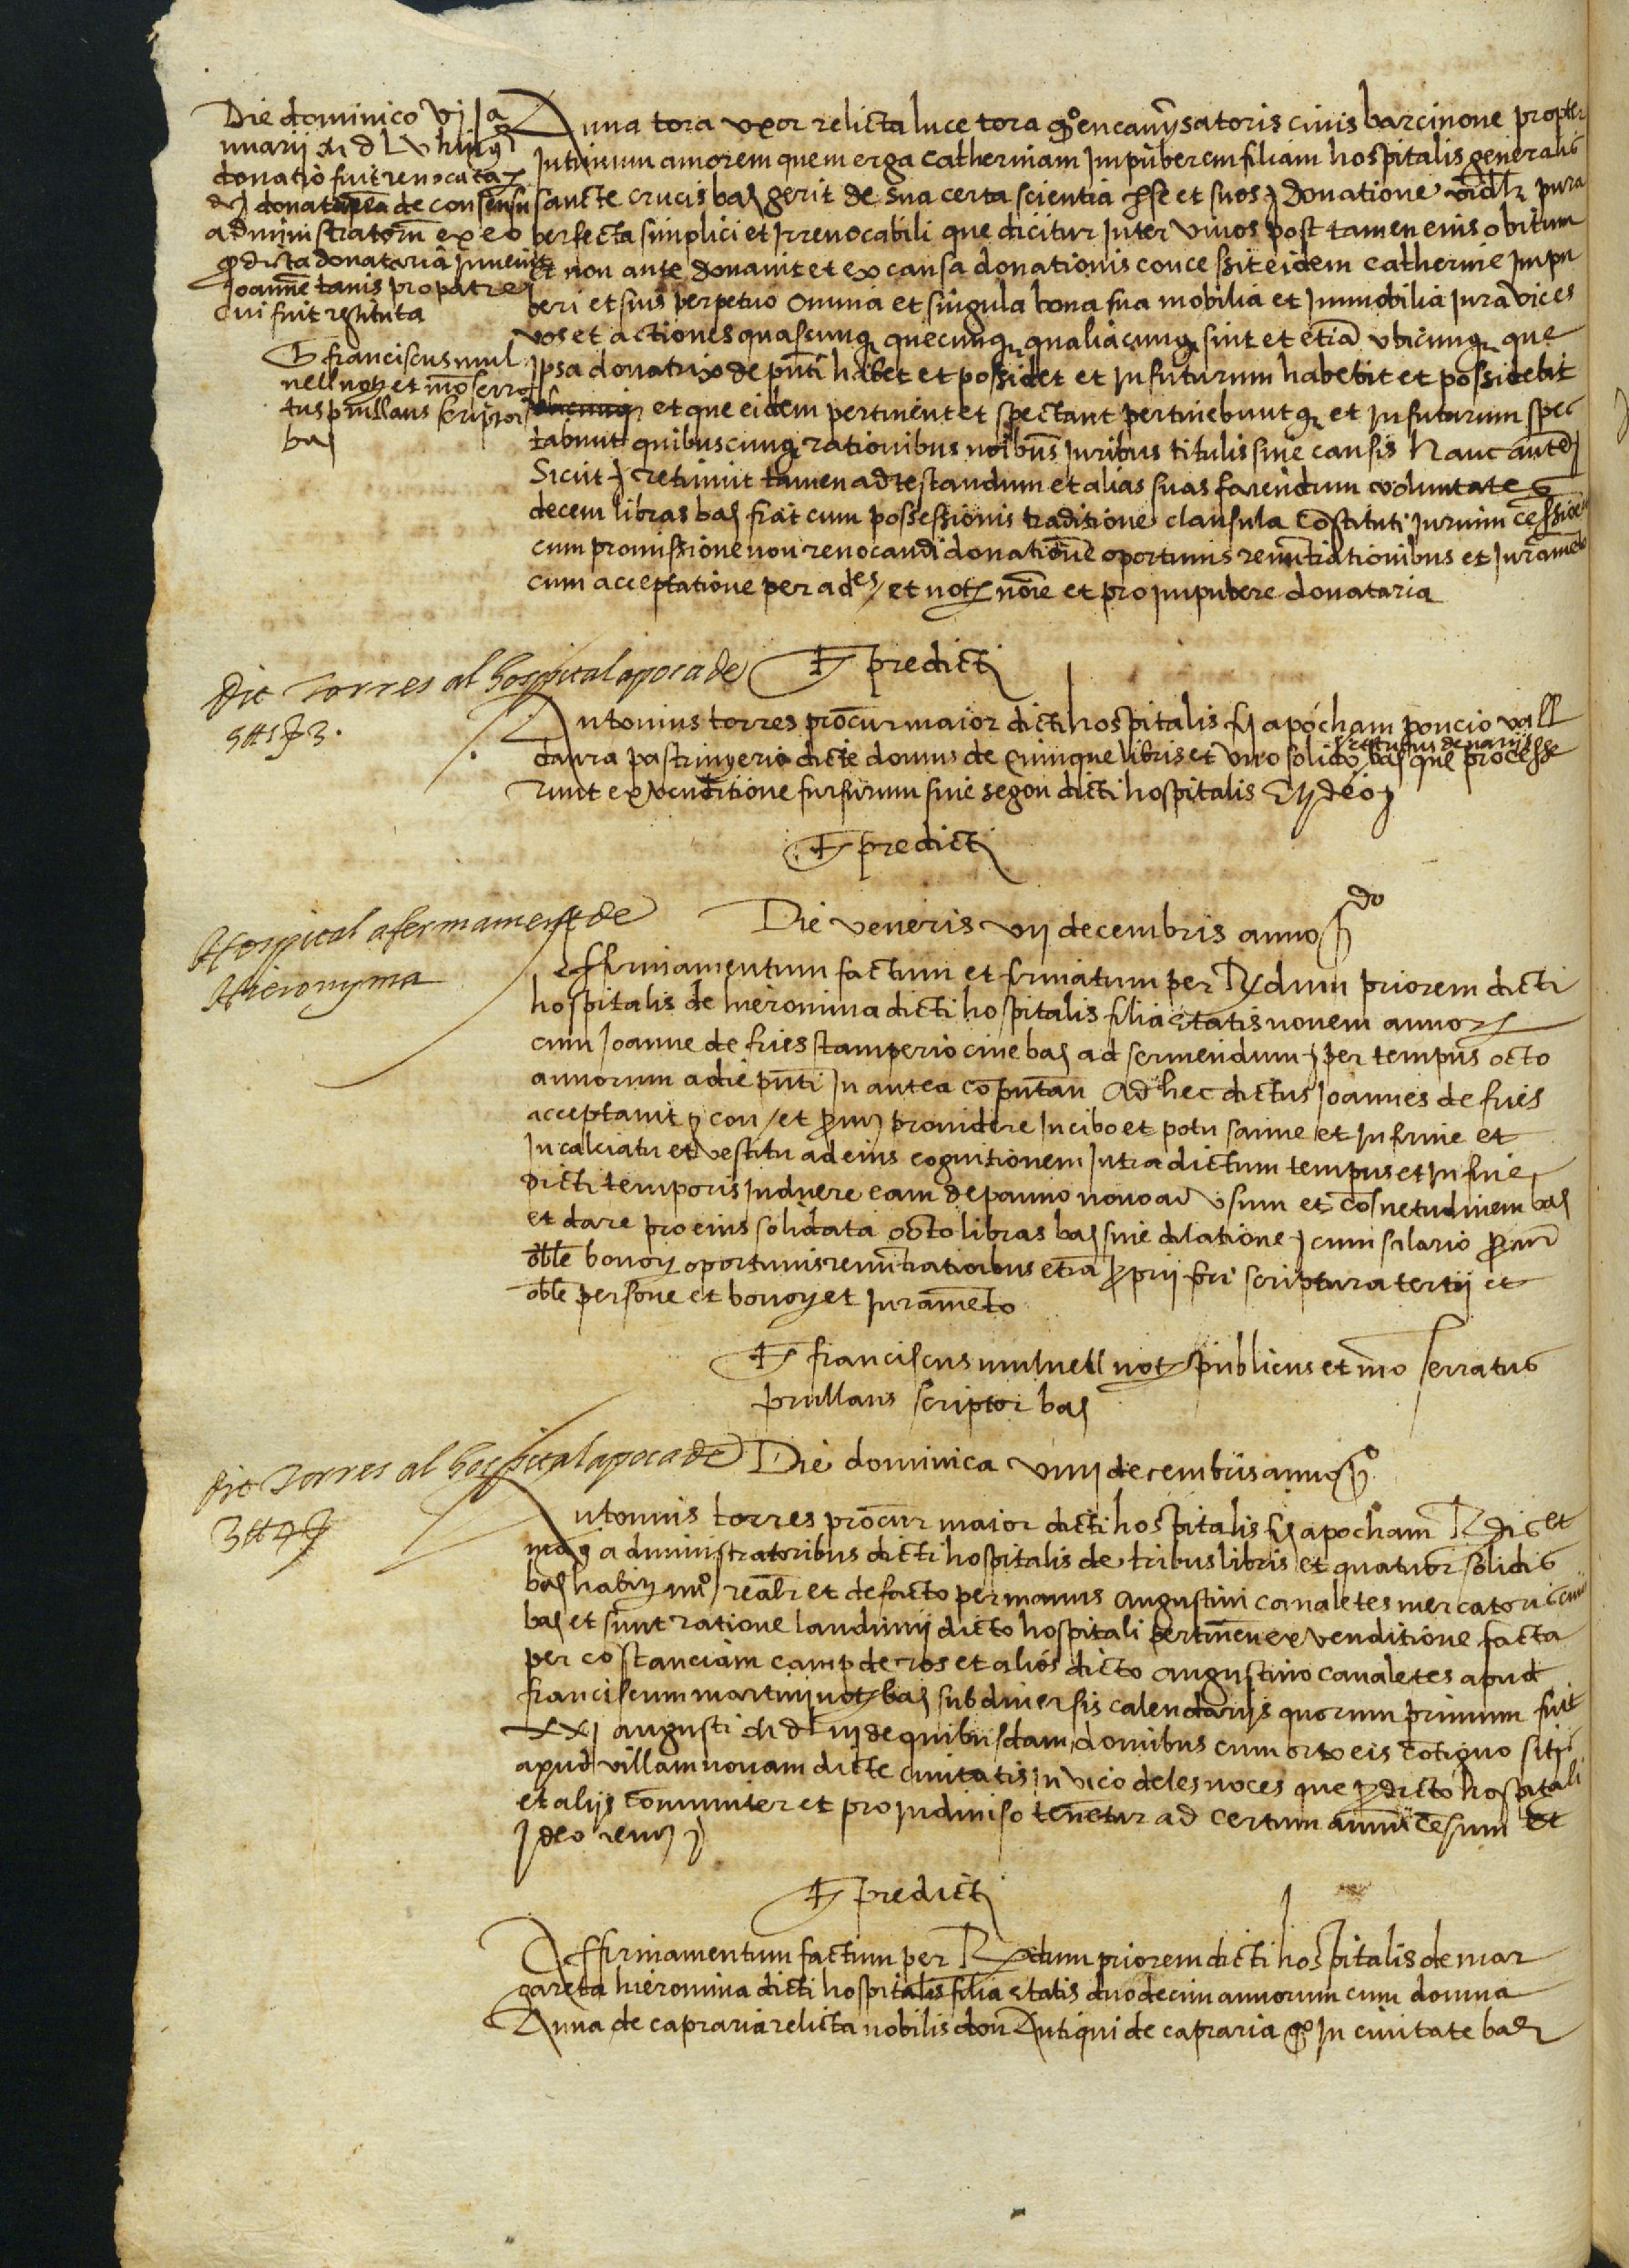 Die dominico vj Ja
nuarij M D L v huiusmodi
donatio fuit revocata
donatarea de consensu
administratorum ex eo
dicta donataria invenit
Joannē tanis pro patre
cui fuit restituta
Ts franciscus mul
nell not et mō serra
tus prullans scriptor
bar
Anna tora uxor relicta luce tora qo encanysatoris civis barcinone propter
Intimum amorem quem erga catherinam Impuberem filiam hospitalis generalis
sancte crucis bar gerit de sua certa scientia per se et suos donatione vidlr pura
perfecta simplici et Irrevocabili que dicitur Inter vivos post tamen eius obitum
et non ante donavit et ex causa donationis concessit eidem catherine Impu
beri et suis perpetuo omnia et singula bona sua mobilia et Immobilia Jura vices
voset actiones quascunq quecunq qualiacunq sint et etiā ubicunq que
Ipsa donatrix de pnti habet et possidet et In futurum habebit et possidebit
et que eidem pertinent et spectant pertinebuntq et In futurum spec
tabunt quibuscunq rationibus noibus Juribus titulis sive causis Hanc autē
Sicut retinuit tamen ad testandum et alias suas faciendum voluntates
decem libras bar fiat cum possessionis traditione clausula cōstituti Jurium cessione
cum promissione non revocandi donationē oportunis renūtiationibus et Juramēto
cum acceptatione per ades et not noīe et pro Impubere donataria
Ts predicti
Dit Torres al hospital apoca de
5 tt 1 s 3.
Antonius torres procur maior dicti hospitalis fi apocham poncio vall
daura pastrinyerio dicte domus de quinque libris et uno solido et tribus denarijs bar que processe
runt ex venditione furfurum sive segon dicti hospitalis Et Ideo
Ts predicti
Hospital afermament de
Hieronyma
Die veneris vij decembris anno pdo
Affirmamentum factum et firmatum per Rxdum priorem dicti
hospitalis de hieronima dicti hospitalis filia etatis novem annor
cum Joanne de fries stamperio cive bar ad serviendum per tempus octo
annorum a die pnti In antea cōputan Ad hec dictus Joannes de fries
acceptavit con et providere In cibo et potu sanne et Infirme et
In calciatu et vestitu ad eius cognitionem Intra dictum tempus et In fine
dicti temporis Induere eam de panno novo ad usum et cōsuetudinem bar
et dare pro eius solidata octo libras bar sine dilatione cum salario procur
oble bonor oportunis renūtiationibus etiā proprij fori scriptura tertij et
oble persone et bonor et Juramēto
Ts franciscus mulnell not publicus et mō serratus
prullans scriptor bar
Dit Torres al hospital apoca de
3 tt 4 s
Die dominica viiij decembris anno po
Antonius torres procur maior dicti hospitalis fi apocham Rdis et
mag administratoribus dicti hospitalis de tribus libris et quatuor solidis
bar habitz mo realr et de facto per manus Augustini canaletes mercatoris civis
bar et sunt ratione laudimij dicto hospitali pertinen ex venditione facta
per costanciam campderos et alios dicto Augustino canaletes apud
franciscum martinij not bar sub diversis calendarijs quorum primum fuit
xxj augusti M D L iij de quibusdam domibus cum orto eis cōtiguo sitis
apud villam novam dicte civitatis In vico de les noces que pro dicto hospitali
et alijs communiter et pro Indiviso tenetur ad certum annuū cēsum Et
Ideo renu
Ts predicti
Affirmamentum factum per Rxdum priorem dicti hospitalis de mar
gareta hieronima dicti hospitalis filia etatis duodecim annorum cum domna
Anna de capraria relicta nobilis don Antiqui de capraria qo In civitate bar